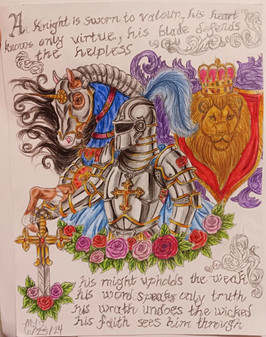 A Knight is sworn to valour, his heart
knows only virtue, his blade defends
the helpless
his might upholds the weak
his word speaks only truth
his wrath undoes the wicked
his faith sees him through